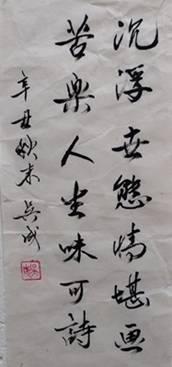 沉浮世態情堪画
苦樂人生味可詩
辛丑秋末吳成